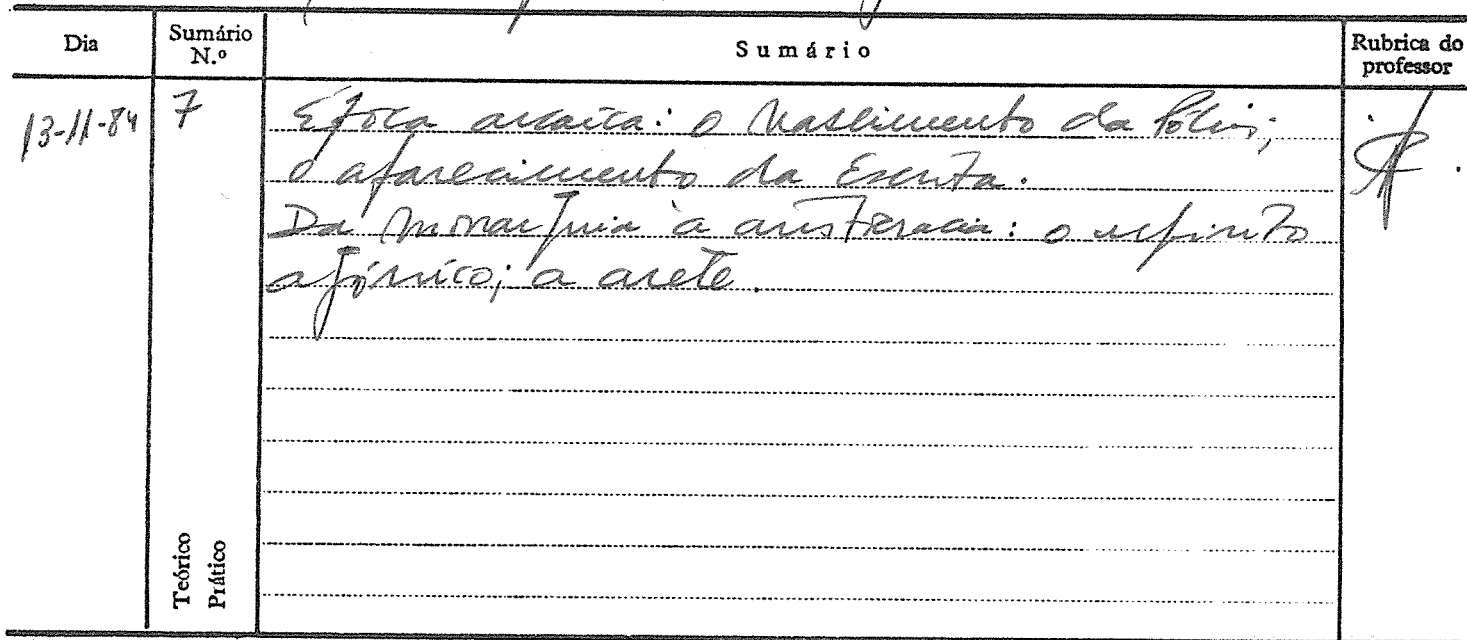 Dia
Sumário N.º
Sumário
Rubrica do professor
13-11-84
7
Época arcaica: o nascimento da Pólis;
o aparecimento da Escrita.
Da monarquia à aristocracia: o espírito
agónico; a arete.
Teórico
Prático